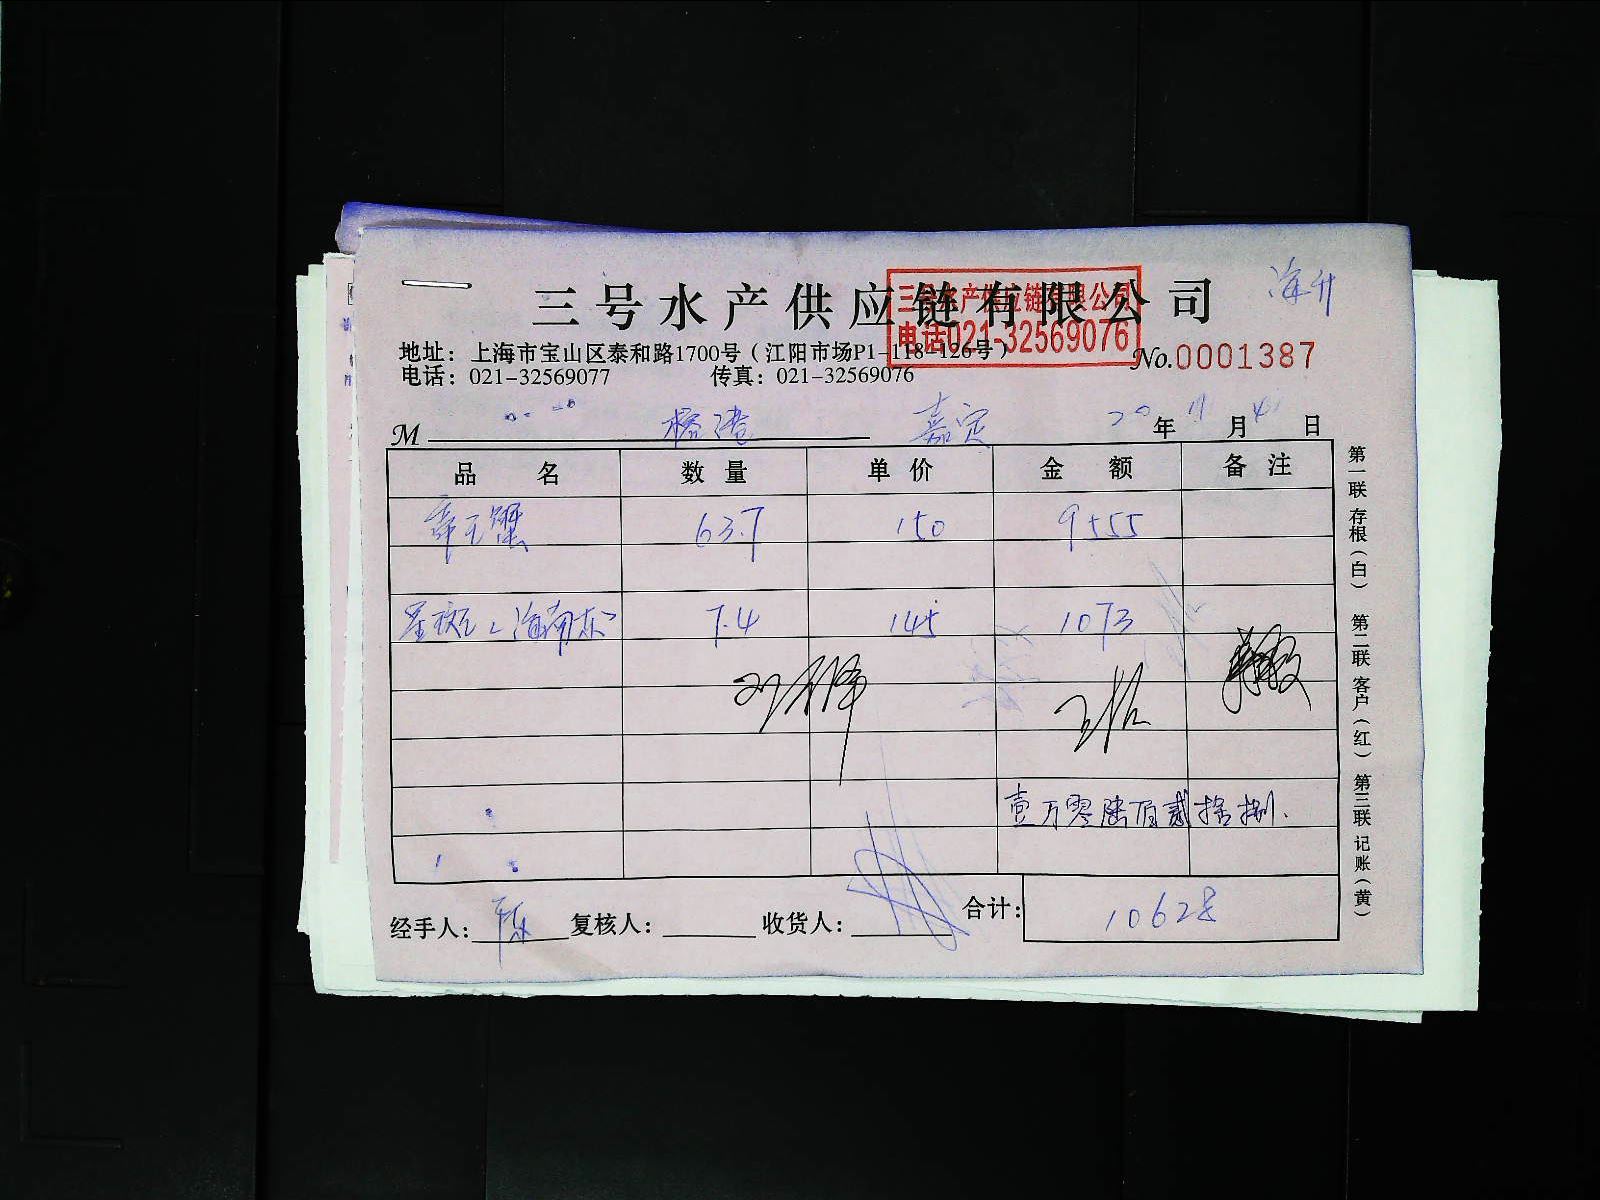 三号水产供应链有限公司
三号水产供应链有限公司
电话021-32569076
海升
地址：上海市宝山区泰和路1700号（江阳市场P1-118-126号）
电话：021-32569077 传真：021-32569076
No.0001387
M 榕港 嘉定 20年11月4日
品名 数量 单价 金额 备注
帝王蟹 63.7 150 9555
7.4 145 1073
壹万零陆佰贰拾捌.
经手人：陈 复核人： 收货人： 合计：10628
第一联存根（白） 第二联客户（红） 第三联记账（黄）